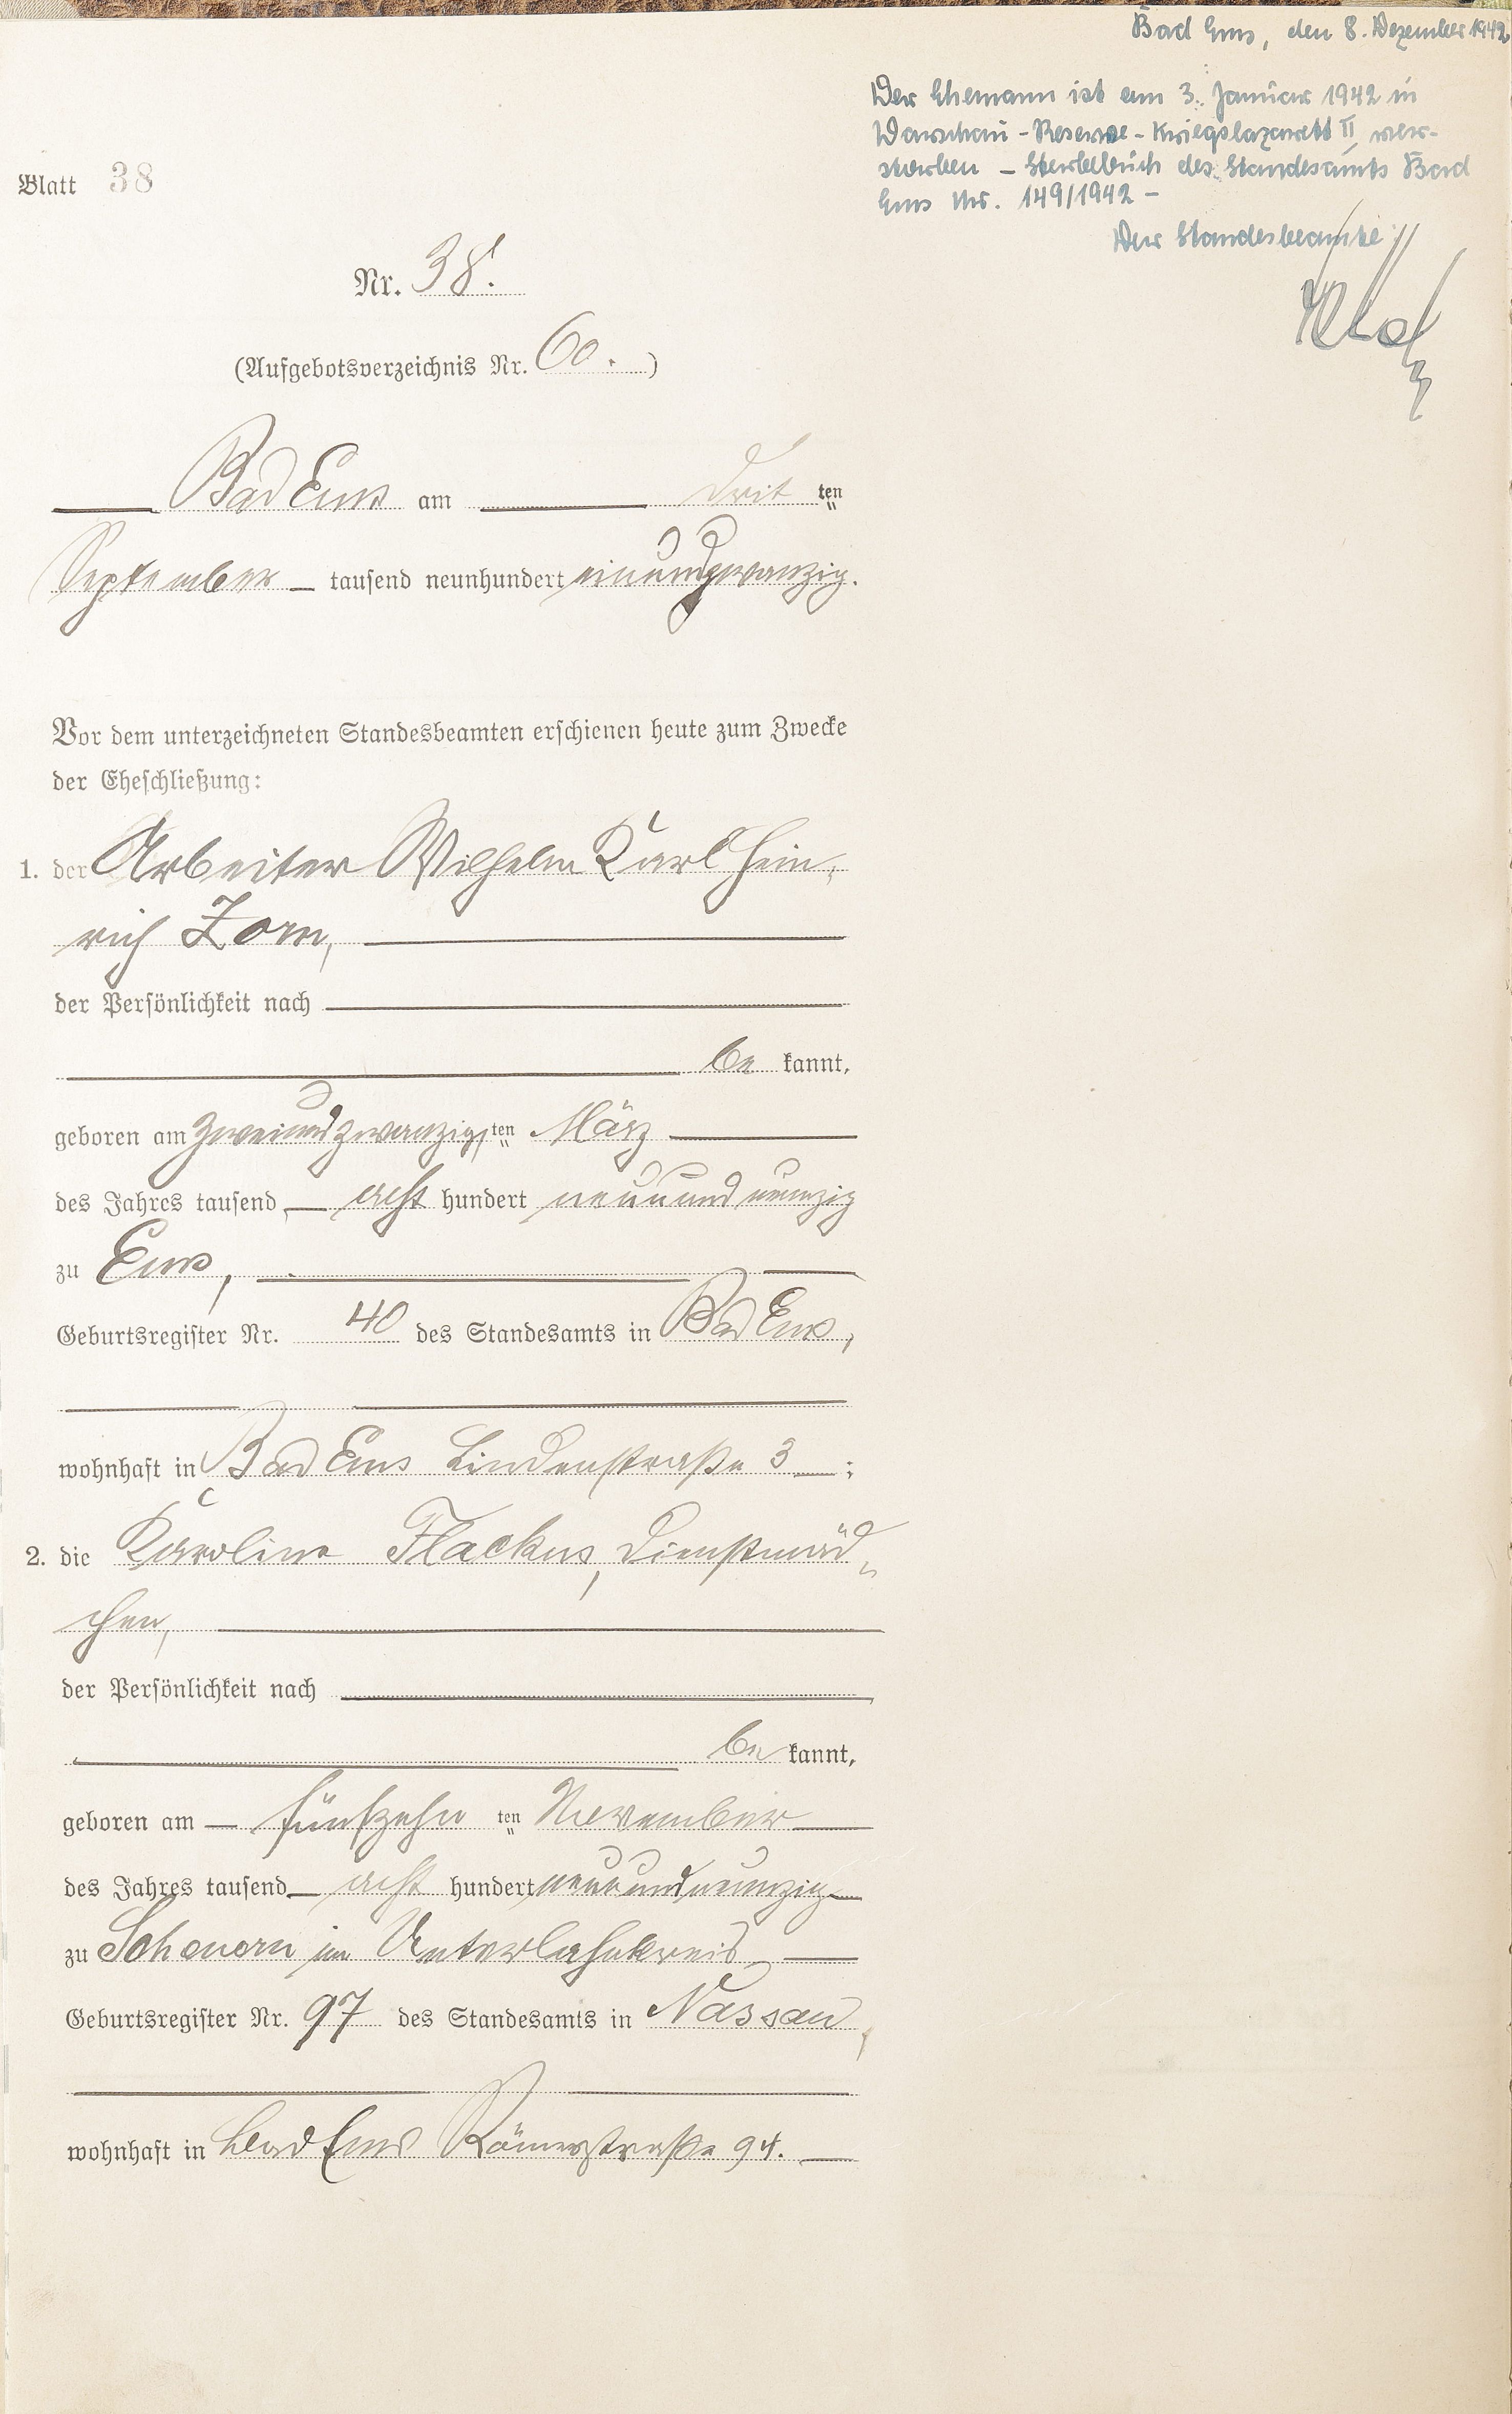 Bad Ems, den 8. Dezember 1942
Der Ehemann ist am 3. Januar 1942 in
Warschau - Reserve - Kriegslazarett II, ver-
storben - Sterbebuch des Standesamts Bad
Ems Nr. 149/1942 -
Der Standesbeamte
Blatt 38
Nr. 38.
(Aufgebotsverzeichnis Nr. 60.)
Bad Ems am drit ten
September tausend neunhundert einundzwanzig.
Vor dem unterzeichneten Standesbeamten erschienen heute zum Zwecke
der Eheschließung:
1. der Arbeiter Wilhelm Karl Hein-
rich Zorn,
der Persönlichkeit nach
be kannt,
geboren am zweiundzwanzigsten März
des Jahres tausend acht hundert neunundneunzig
zu Ems,
Geburtsregister Nr. 40 des Standesamts in Bad Ems,
wohnhaft in Bad Ems Lindenstraße 3 ;
2. die Karoline Flackus, Dienstmäd-
chen,
der Persönlichkeit nach
be kannt,
geboren am fünfzehn ten November
des Jahres tausend acht hundert neunundneunzig
zu Scheuern im Unterlahnkreis
Geburtsregister Nr. 97 des Standesamts in Nassau,
wohnhaft in Bad Ems Römerstraße 94.